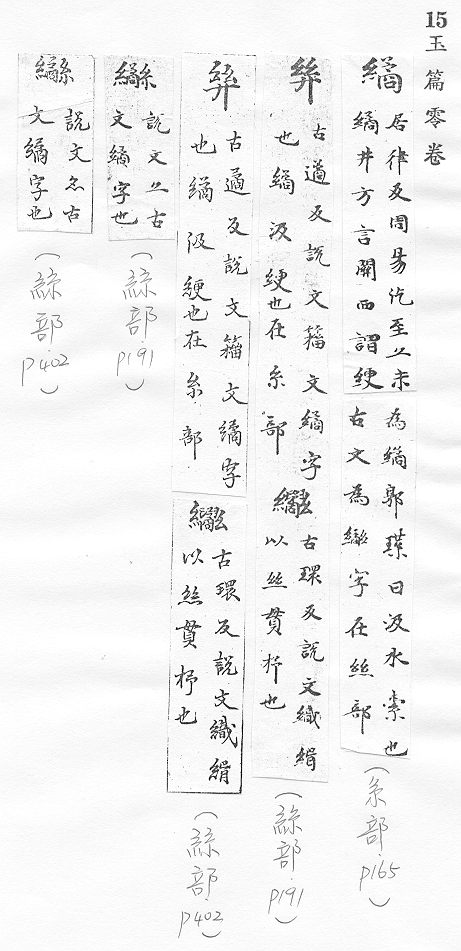 15 玉篇零卷
繘
居律反周易汔至亠未
繘井方言關西謂綆
為繘郭璞曰汲水索也
古文為字在絲部
(糸部 P165)
古遹反説文籀文繘字
也繘汲綆也在糸部
古環反説文織絹
以絲貫杼也
(絲部 P191)
古遹反説文籀文繘字
也繘汲綆也在糸部
古環反説文織絹
以絲貫杼也
(絲部 P402)
説文亠古
文繘字也
(絲部 P191)
説文古
文繘字也
(絲部 P402)